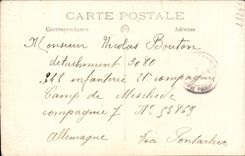 CARTE POSTALE
Correspondance
Adresse
Monsieur Nicolas Bouton
detachment 3080
212 infanterie 21e compagnie
Camp de Meschede
compagnie 7 No 53869
Allemagne Via Pontarlier